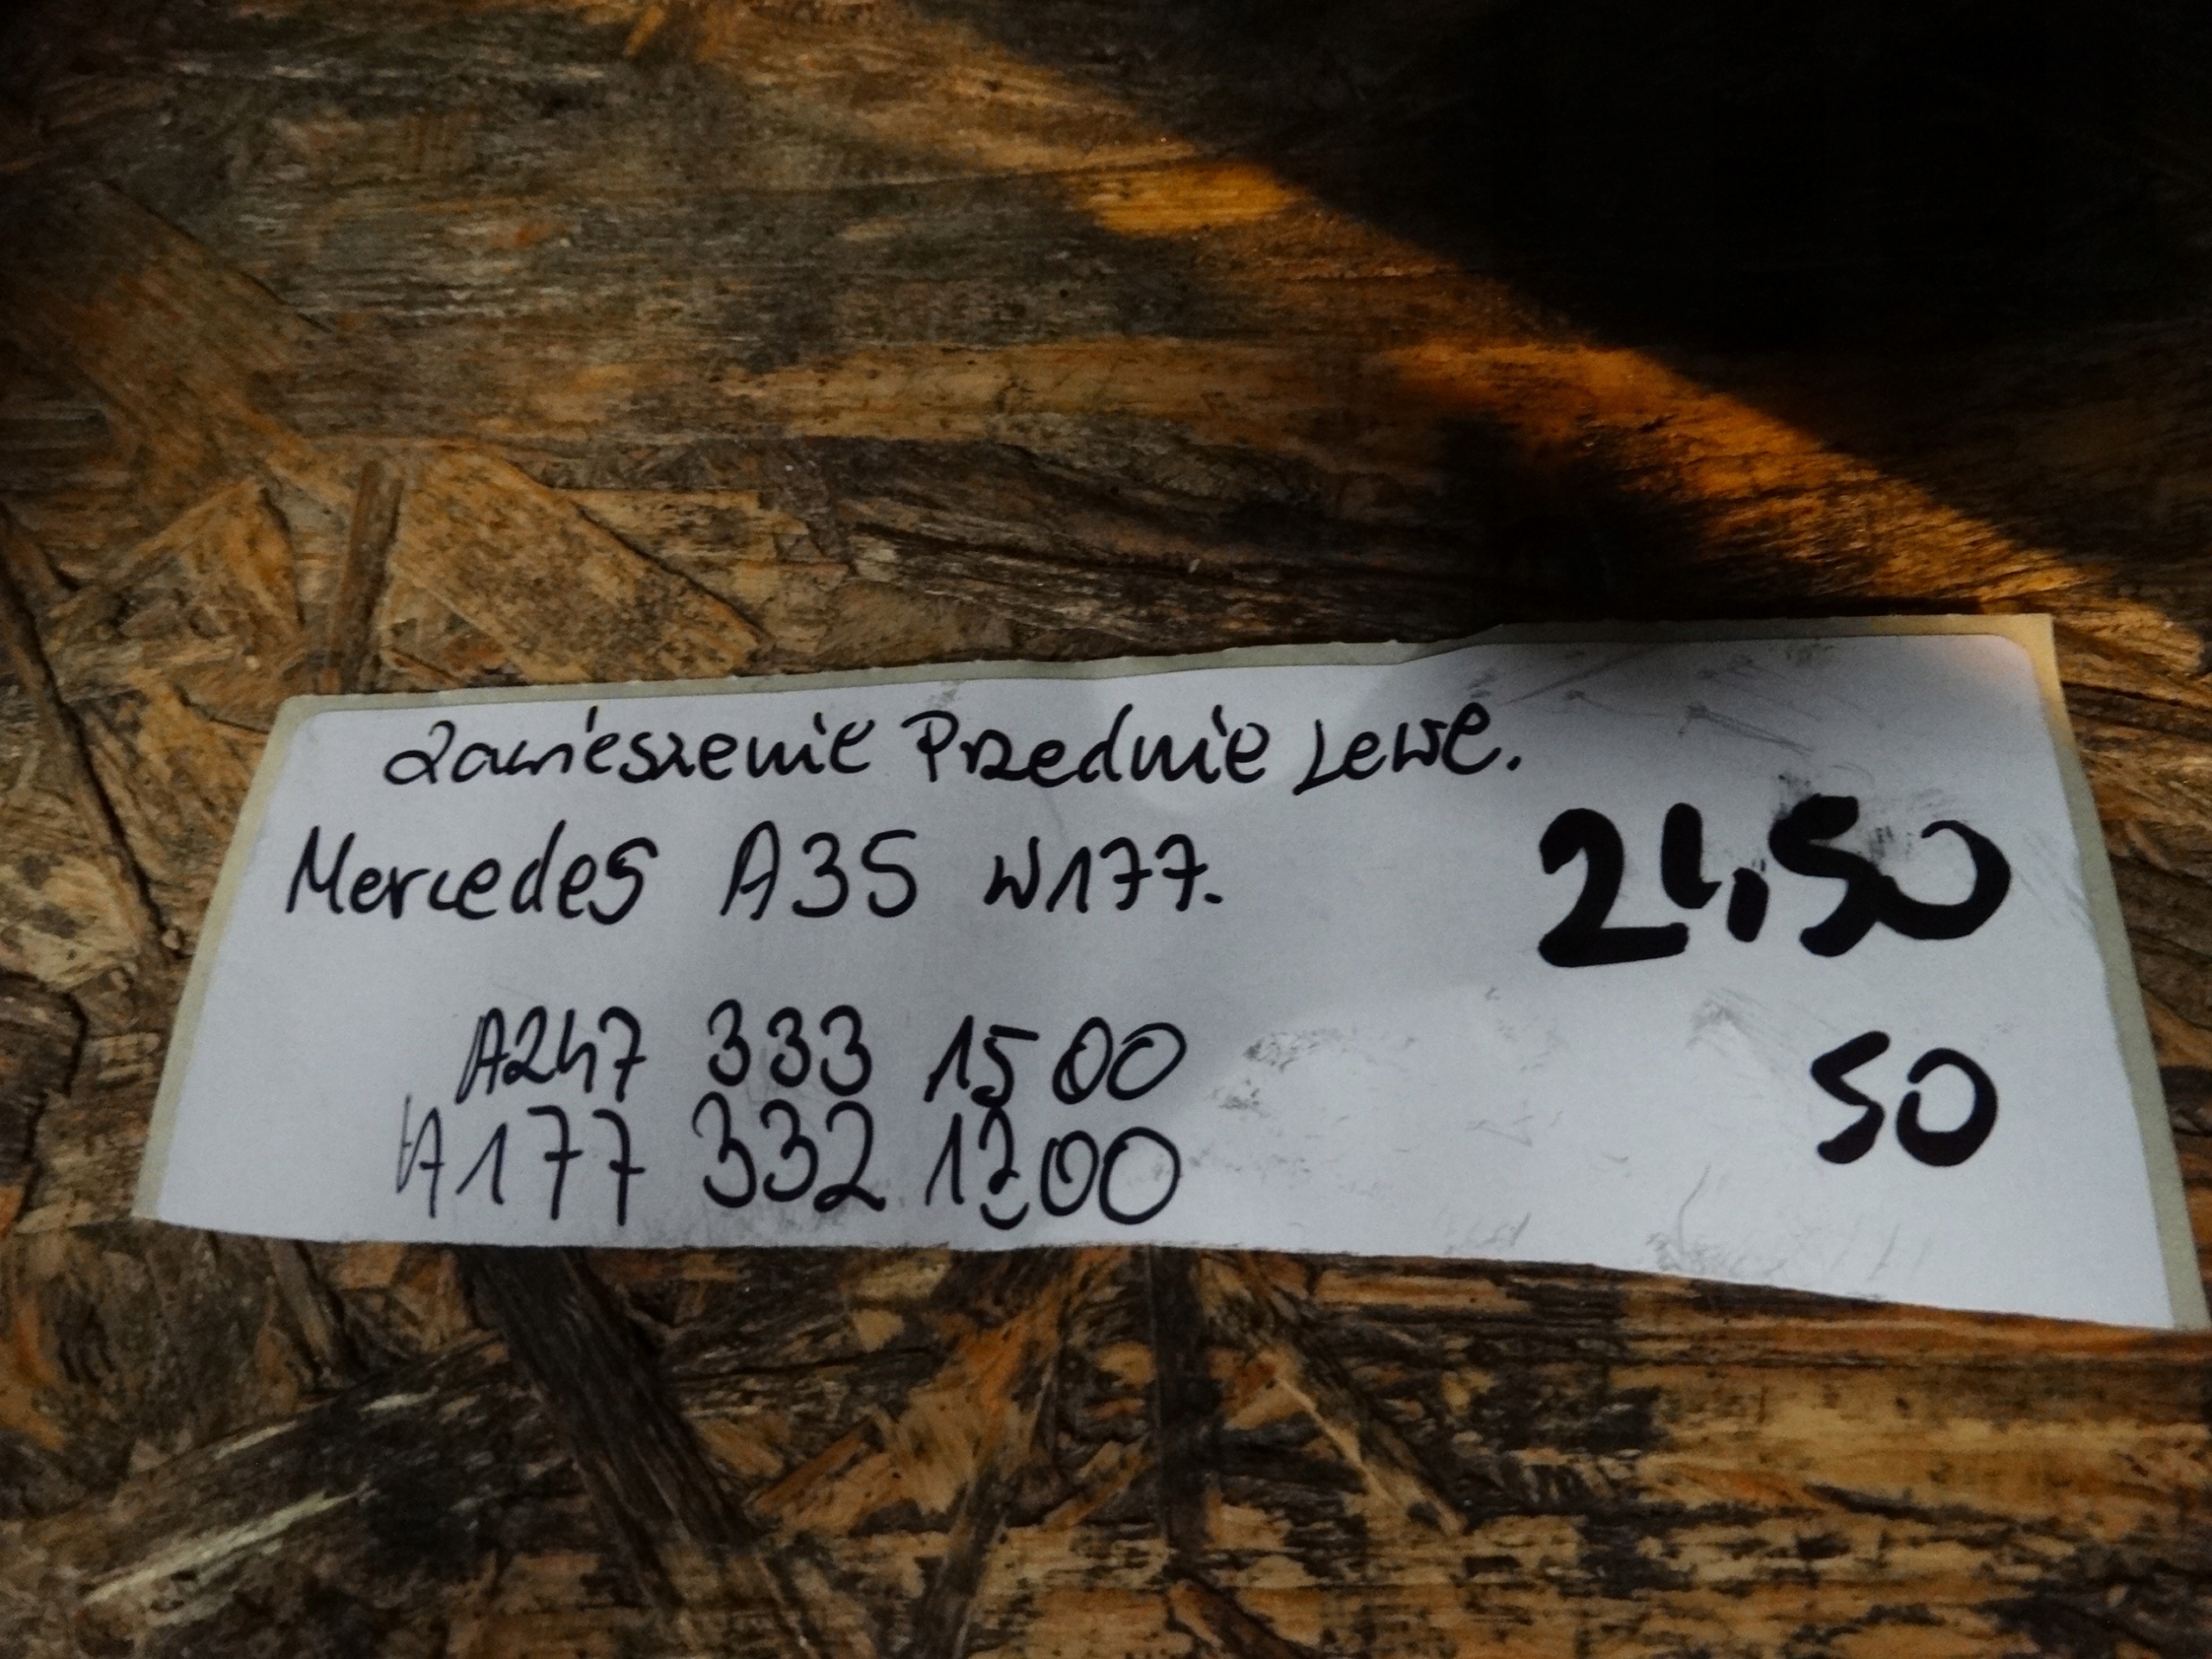 Zawieszenie Przednie Lewe.
Mercedes A35 W177.
24,50
A247 333 15 00
50
A177 332 1200